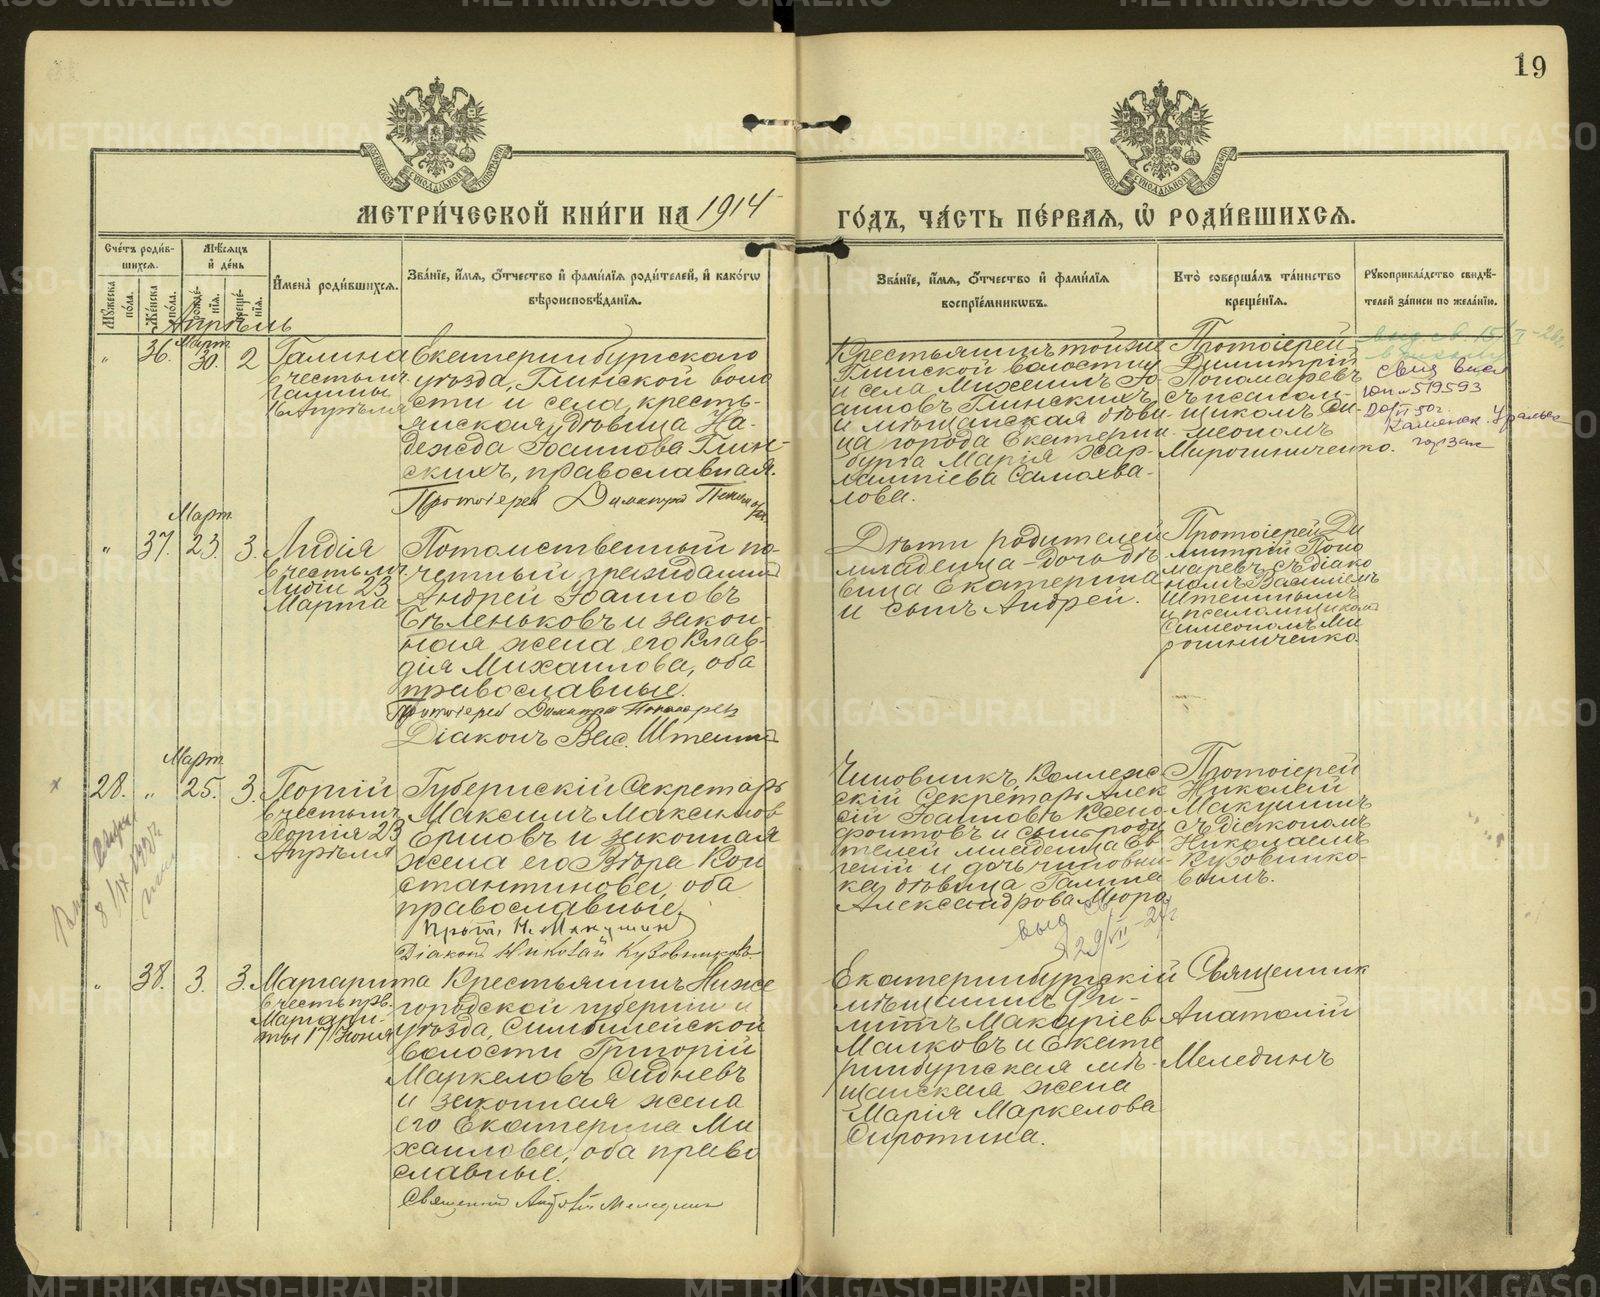 19
МЕТРИ́ЧЕСКОЙ КНИ́ГИ НА 1914
ГО́ДЪ, ЧА́СТЬ ПЕ́РВАЯ, Ѽ РОДИ́ВШИХСЯ.
Сче́тъ роди́в-
шихся.
Мꙋ́жеска по́ла.
Же́нска по́ла.
Мѣ́сяцъ
и҆ де́нь
рожде́нїя.
креще́нїя.
И҆мена̀ роди́вшихся.
Зва́нїе, и҆́мя, ѻ҆́тчество и҆ фами́лїя роди́телей, и҆ како́гѡ
вѣроисповѣ́данїя.
Зва́нїе, и҆́мя, ѻ҆́тчество и҆ фами́лїя
воспрїе́мникѡвъ.
Кто̀ соверша́лъ та́инство
креще́нїя.
Рꙋкоприкла́дство свидѣ́-
телей за́писи по жела́нїю.
Апрѣль
Март
„ 36. 30. 2
Галина
в честь мч.
Галины
16 Апрѣля
Екатеринбургскаго
уѣзда, Глинской воло
сти и села, кресть-
янская дѣвица На-
дежда Іоаннова Глин-
скихъ, православная.
Протоіерей Димитрій Пономарев
Крестьянинъ той же
Глинской волости
и села Михаилъ Іо-
анновъ Глинскихъ
и мѣщанская дѣви-
ца города Екатерин-
бурга Марія Хар-
лампіева Самохва-
лова.
Протоіерей
Димитрій
Пономаревъ
съ псалом-
щикомъ Си-
меономъ
Мирошниченко.
519593
Каменск. Уральск
Март
„ 37. 23. 3.
Лидія
в честь мч.
Лидіи 23
Марта
Потомственный по-
четный гражданин
Андрей Іоанновъ
Бѣленьковъ и закон-
ная жена его Клав-
дія Михаилова, оба
православные.
Протоіерей Димитрій Пономарев
Діаконъ Вас.
Дѣти родителей
младенца – дочь дѣ
вица Екатерина
и сынъ Андрей.
Протоіерей Ди
митрій Поно
маревъ съ діако
номъ Василіемъ
и псаломщиком
Симеономъ Ми
рошниченко.
Март
28. „ 25. 3.
Георгій
в честь мч.
Георгія 23
Апрѣля
Губернскій Секретарь
Максимъ Максимов
Ершовъ и законная
жена его Вѣра Кон
стантинова, оба
православные.
Прот. Н. Макушин
Діакон Николай Кузовников
Чиновникъ, Коллежс
скій Секретарь Алек
сій Іоанновъ Ксено-
фонтовъ и сынъ роди
телей младенца Ев
геній и дочь чиновни-
ка дѣвица Галина
Александрова Мюра
Протоіерей
Николай
Макушинъ
съ діакономъ
Николаемъ
Кузовнико-
вымъ.
„ 38. 3. 3.
Маргарита
в честь прв.
Маргари-
ты 17 Іюля
Крестьянинъ Ниже
городской губерніи и
уѣзда,
волости Григорій
Маркеловъ Сидневъ
и законная жена
его Екатерина Ми
хаилова, оба право
славные.
Священник Анатолій Мелединъ
Екатеринбургскій
мѣщанинъ Фи-
липпъ Макаріев
Малковъ и Екате
ринбургская мѣ-
щанская жена
Марія Маркелова
Сиротина.
Священник
Анатолій
Мелединъ
METRIKI.GASO-URAL.RU